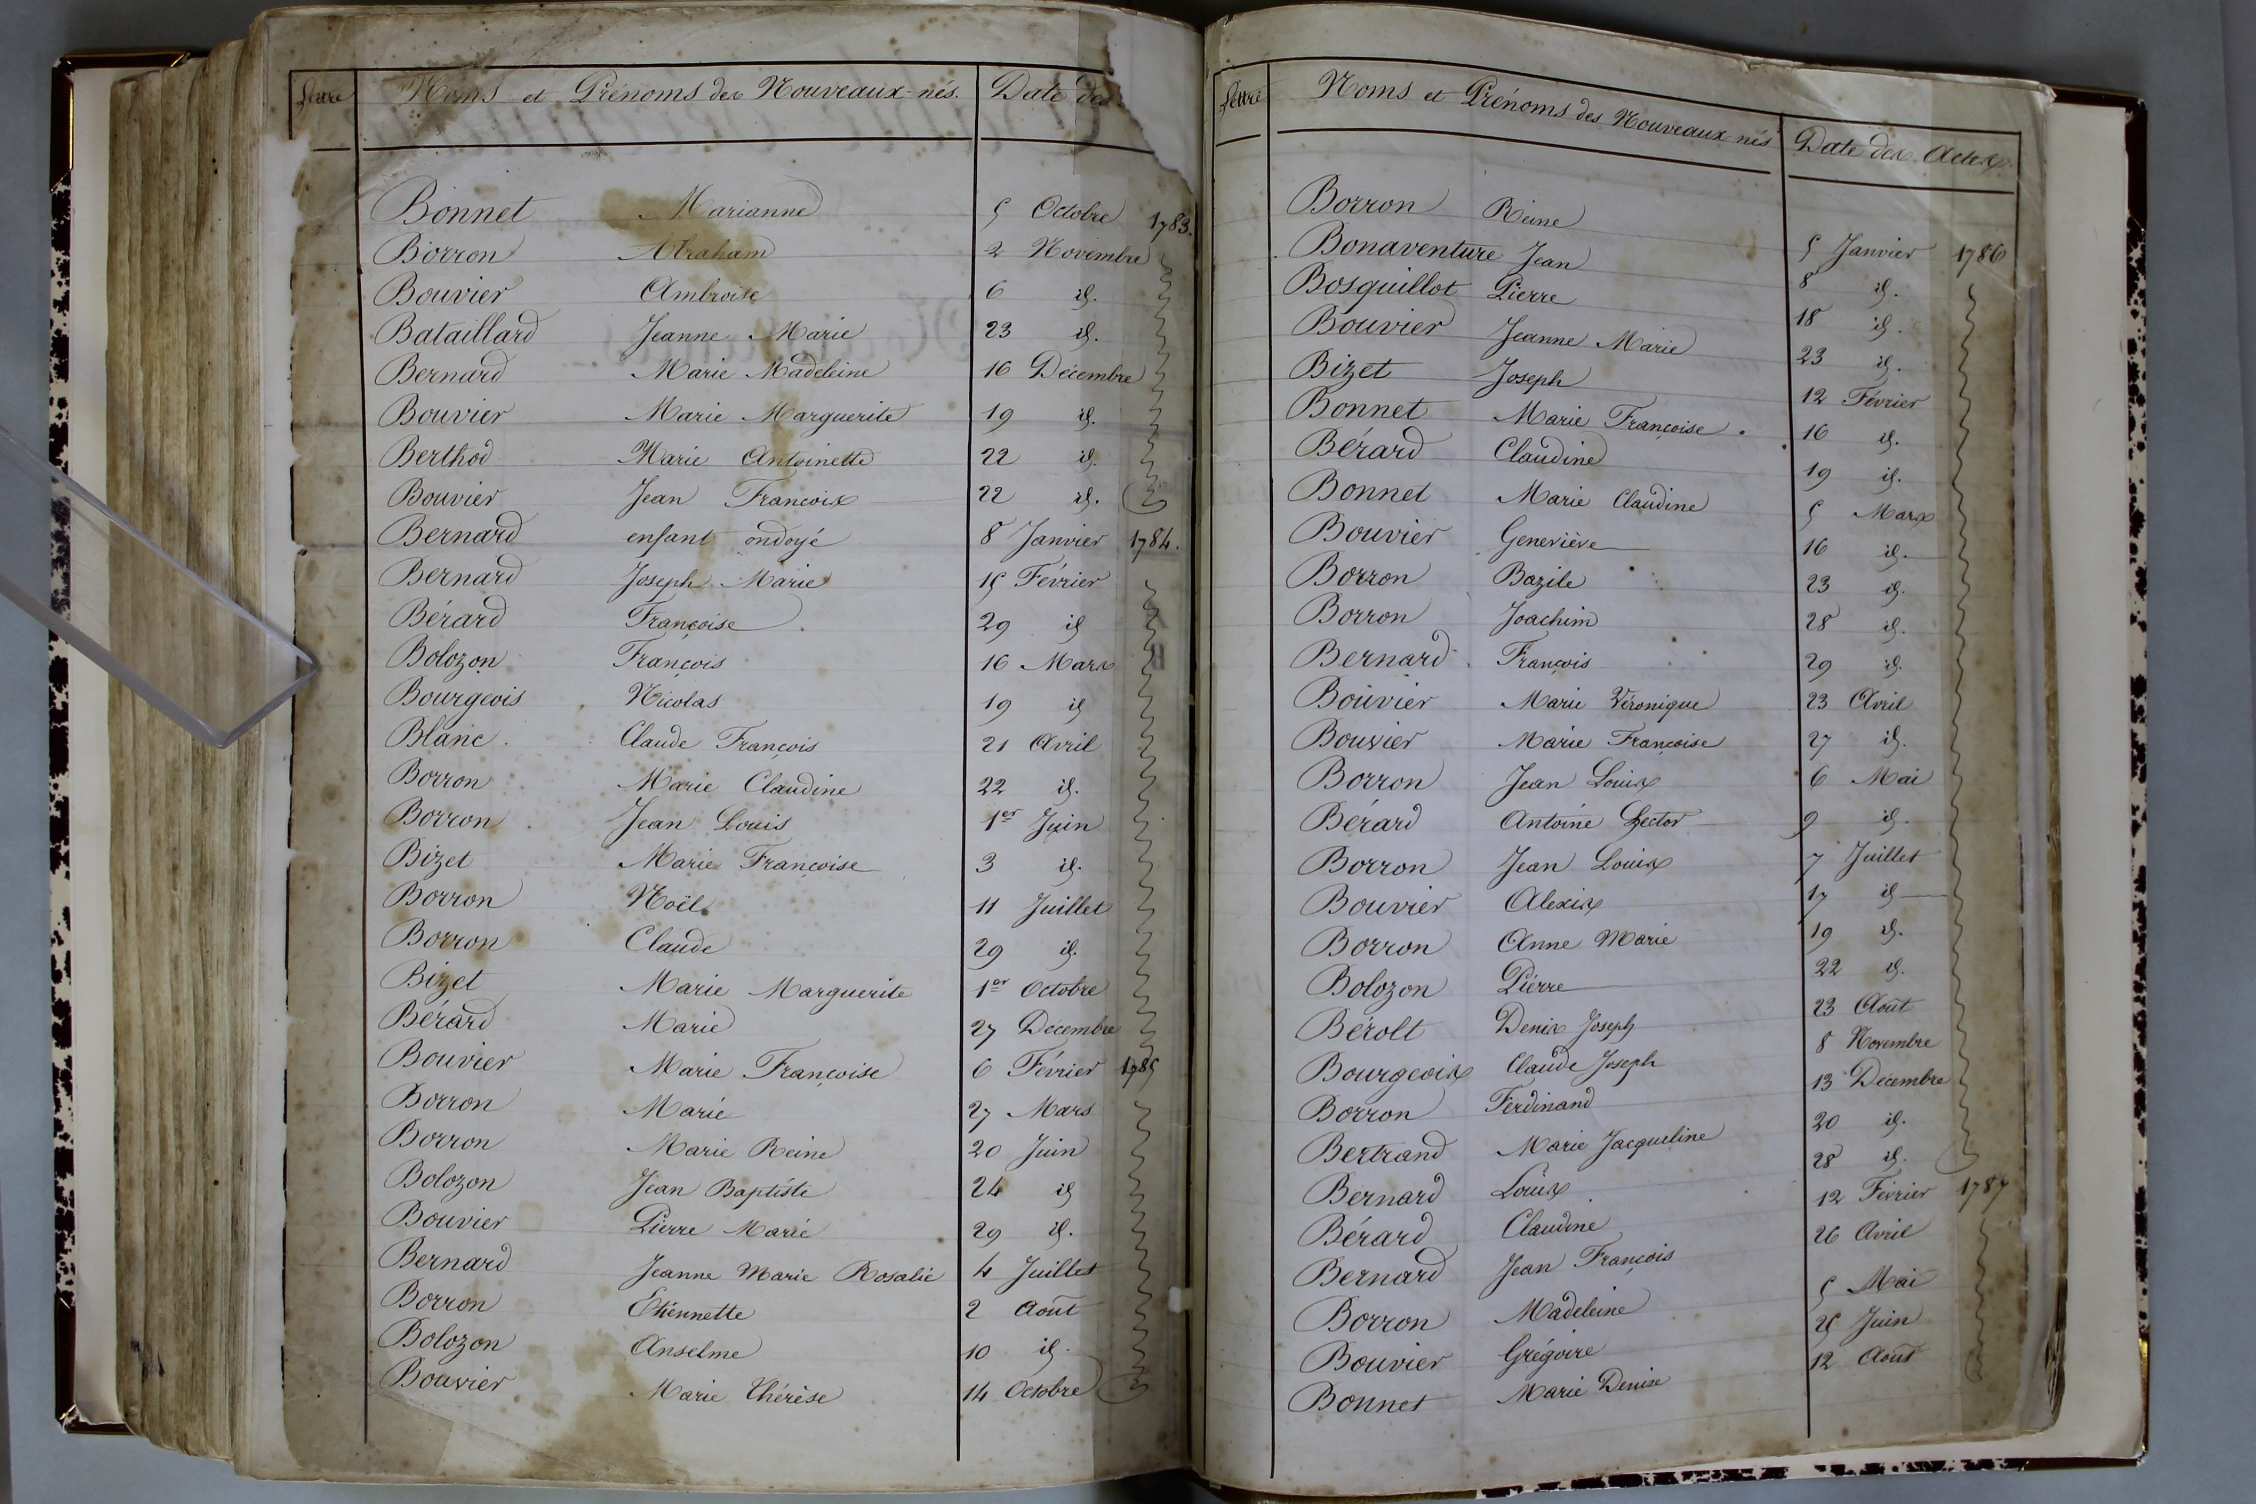 Lettre Noms et Prénoms des Nouveaux-nés. Date des
Bonnet Marianne 5 Octobre 1783.
Borron Abraham 2 Novembre
Bouvier Ambroise 6 id.
Bataillard Jeanne Marie 23 id.
Bernard Marie Madeleine 16 Décembre
Bouvier Marie Marguerite 19 id.
Berthod Marie Antoinette 22 id.
Bouvier Jean François 22 id.
Bernard enfant ondoyé 8 Janvier 1784.
Bernard Joseph Marie 15 Février
Bérard Françoise 29 id
Bolozon François 16 Mars
Bourgeois Nicolas 19 id
Blanc Claude François 21 Avril
Borron Marie Claudine 22 id.
Borron Jean Louis 1er Juin
Bizet Marie Françoise 3 id.
Borron Noël 11 Juillet
Borron Claude 29 id.
Bizet Marie Marguerite 1er Octobre
Bérard Marie 27 Décembre
Bouvier Marie Françoise 6 Février 1785
Borron Marie 27 Mars
Borron Marie Reine 20 Juin
Bolozon Jean Baptiste 24 id
Bouvier Pierre Marie 29 id.
Bernard Jeanne Marie Rosalie 4 Juillet
Borron Étiennette 2 Août
Bolozon Anselme 10 id.
Bouvier Marie Thérèse 14 Octobre
Lettre Noms et Prénoms des Nouveaux-nés Date des Actes.
Borron Reine 5 Janvier 1786
Bonaventure Jean 8 id.
Bosquillot Pierre 18 id.
Bouvier Jeanne Marie 23 id.
Bizet Joseph 12 Février
Bonnet Marie Françoise. 16 id.
Bérard Claudine 19 id.
Bonnet Marie Claudine 5 Mars
Bouvier Geneviève 16 id.
Borron Bazile 23 id.
Borron Joachim 28 id.
Bernard François 29 id.
Bouvier Marie Véronique 23 Avril
Bouvier Marie Françoise 27 id.
Borron Jean Louis 6 Mai
Bérard Antoine Hector 9 id.
Borron Jean Louis 7 Juillet
Bouvier Alexis 17 id
Borron Anne Marie 19 id.
Bolozon Pierre 22 id.
Bérolt Denis Joseph 23 Août
Bourgeois Claude Joseph 8 Novembre
Borron Ferdinand 13 Décembre
Bertrand Marie Jacqueline 20 id.
Bernard Louis 28 id.
Bérard Claudine 12 Février 1787
Bernard Jean François 26 Avril
Borron Madeleine 5 Mai
Bouvier Grégoire 25 Juin
Bonnet Marie Denise 12 Août